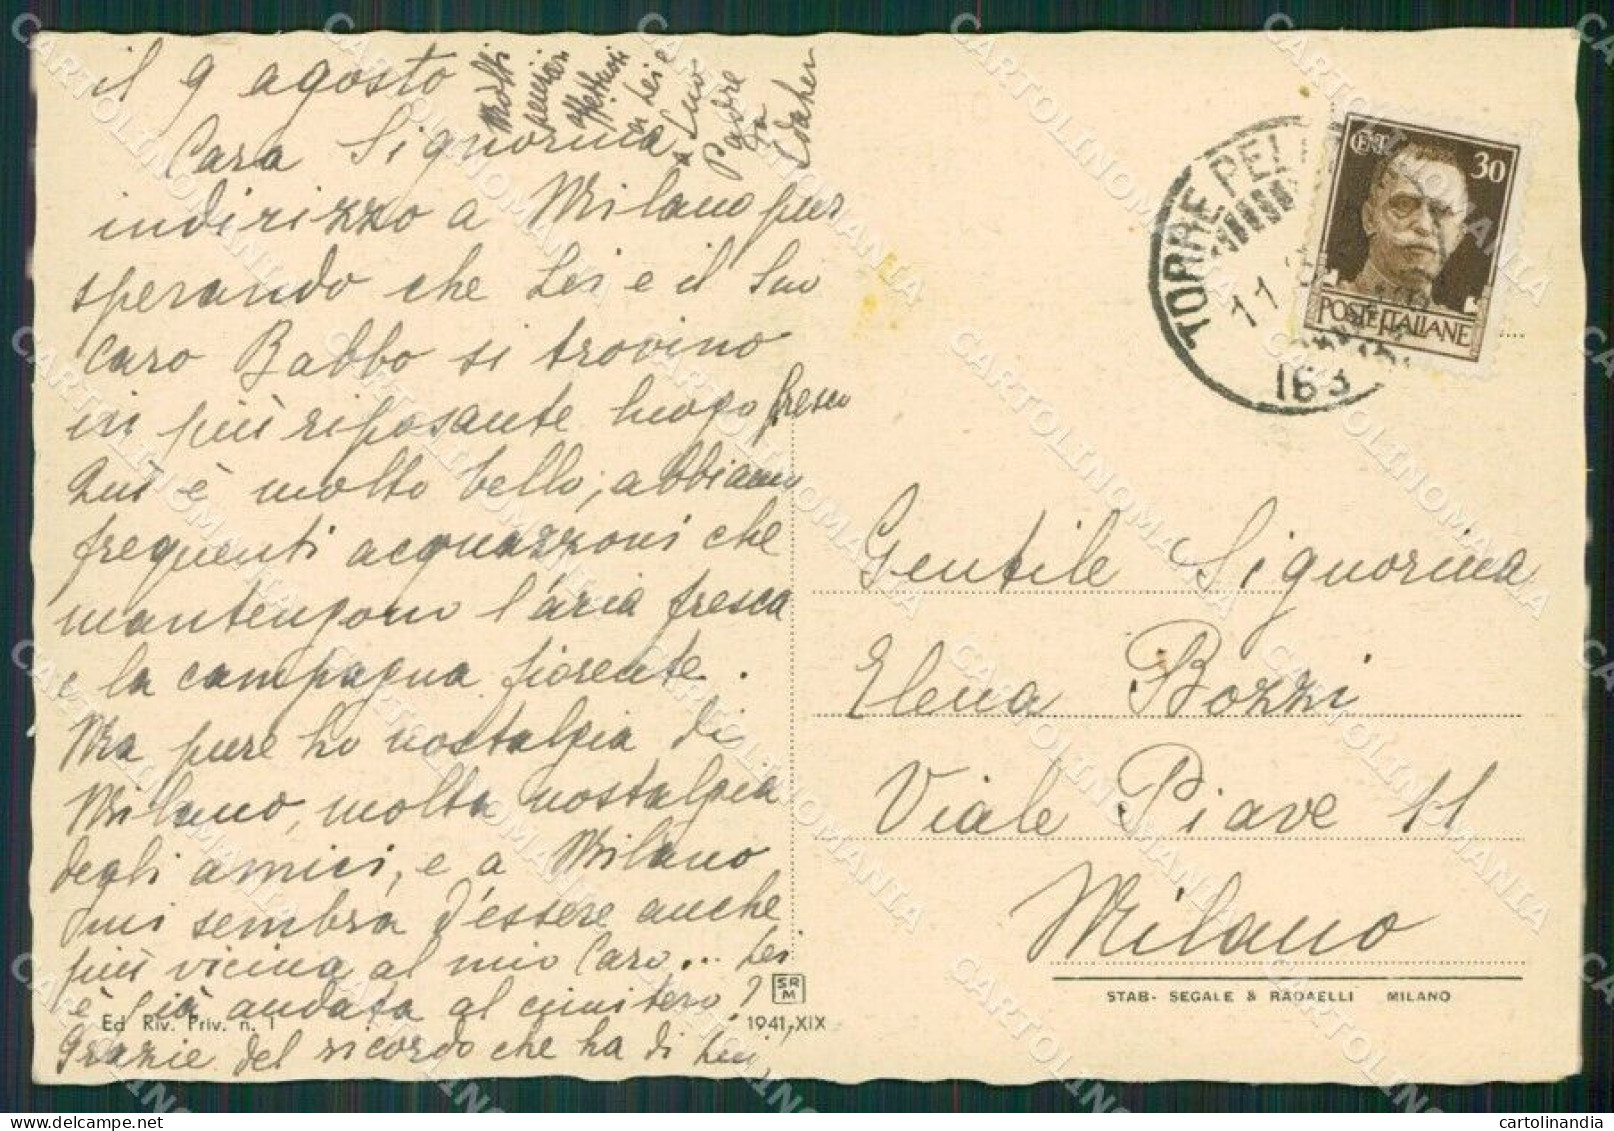 il 9 agosto
Cara Signorina,
indirizzo a Milano pur
sperando che Lei e il Suo
caro Babbo si trovino
in più riposante luogo fresco
Qui è molto bello, abbiamo
frequenti acquazzoni che
mantengono l'aria fresca
e la campagna fiorente.
Ma pure ho nostalgia di
Milano, molta nostalgia
degli amici, e a Milano
mi sembra d'essere anche
più vicina al mio Caro... Lei
è già andata al cimitero?
Grazie del ricordo che ha di Lui,
Molti
affettuosi
a Lei e
a Suo
Padre
da
TORRE PEL
11
163
CENT. 30
POSTE ITALIANE
Gentile Signorina
Elena Bozzi
Viale Piave 11
Milano
STAB. SEGALE & RADAELLI MILANO
SR
M
1941, XIX
Ed Riv. Priv. n. 1
CARTOLINOMANIA
cartolinandia